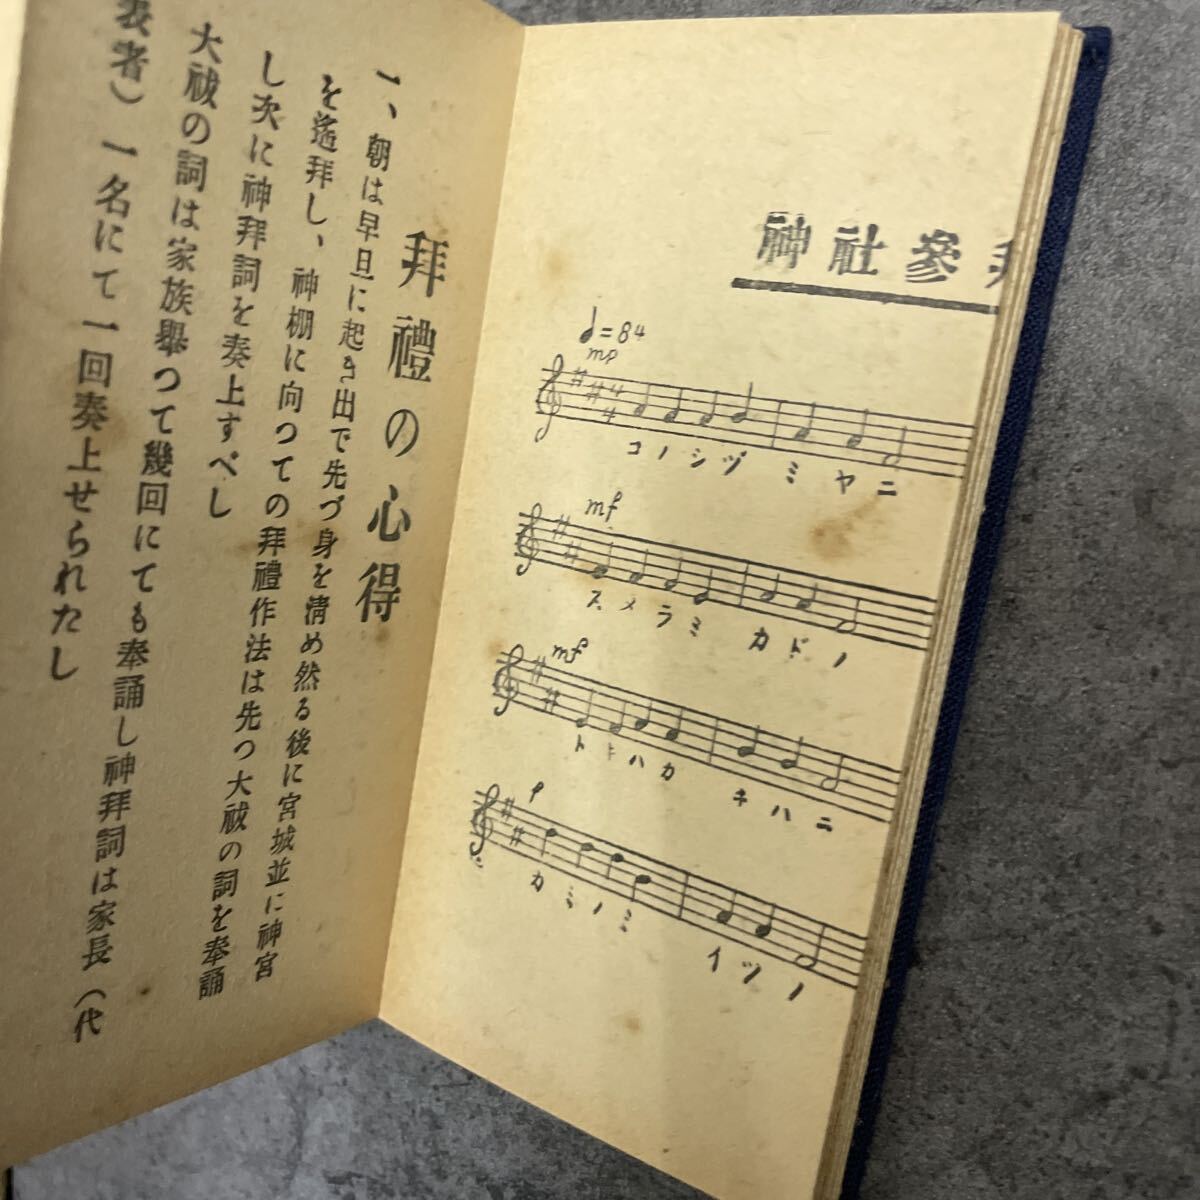 神社參拜
♩=84
mp
コノシヅ ミヤニ
mf
スメラミ カドノ
mf
トキハカ キハニ
p
カミノミ イツノ
拜禮の心得
一、朝は早旦に起き出で先づ身を淸め然る後に宮城並に神宮
を遙拜し、神棚に向つての拜禮作法は先つ大祓の詞を奉誦
し次に神拜詞を奏上すべし
大祓の詞は家族擧つて幾回にても奉誦し神拜詞は家長(代
表者)一名にて一回奏上せられたし